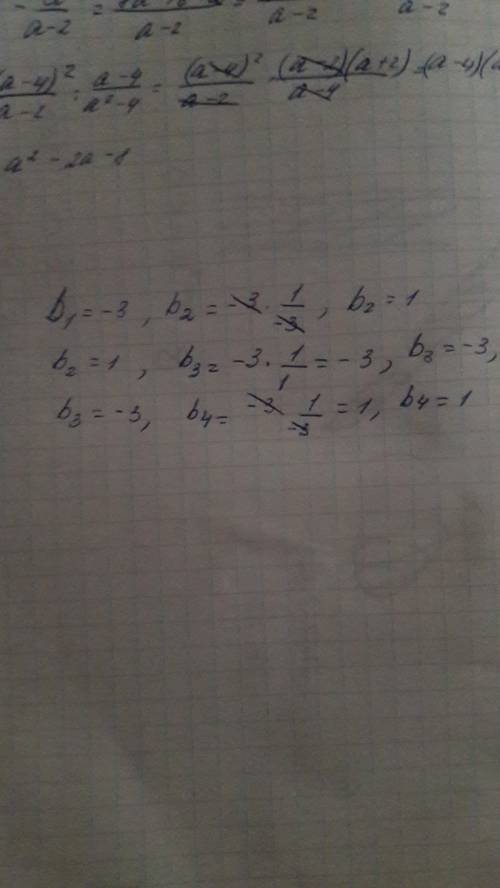 a-2 = a-2 = a-2 a-2
(a-4)²/a-2 : a-4/a²-4 = (a-4)²/a-2 · (a-2)(a+2)/a-4 = (a-4)(
a² - 2a - 8
b₁ = -3, b₂ = -3 · 1/-3, b₂ = 1
b₂ = 1, b₃ = -3 · 1/1 = -3, b₃ = -3,
b₃ = -3, b₄ = -3 · 1/-3 = 1, b₄ = 1